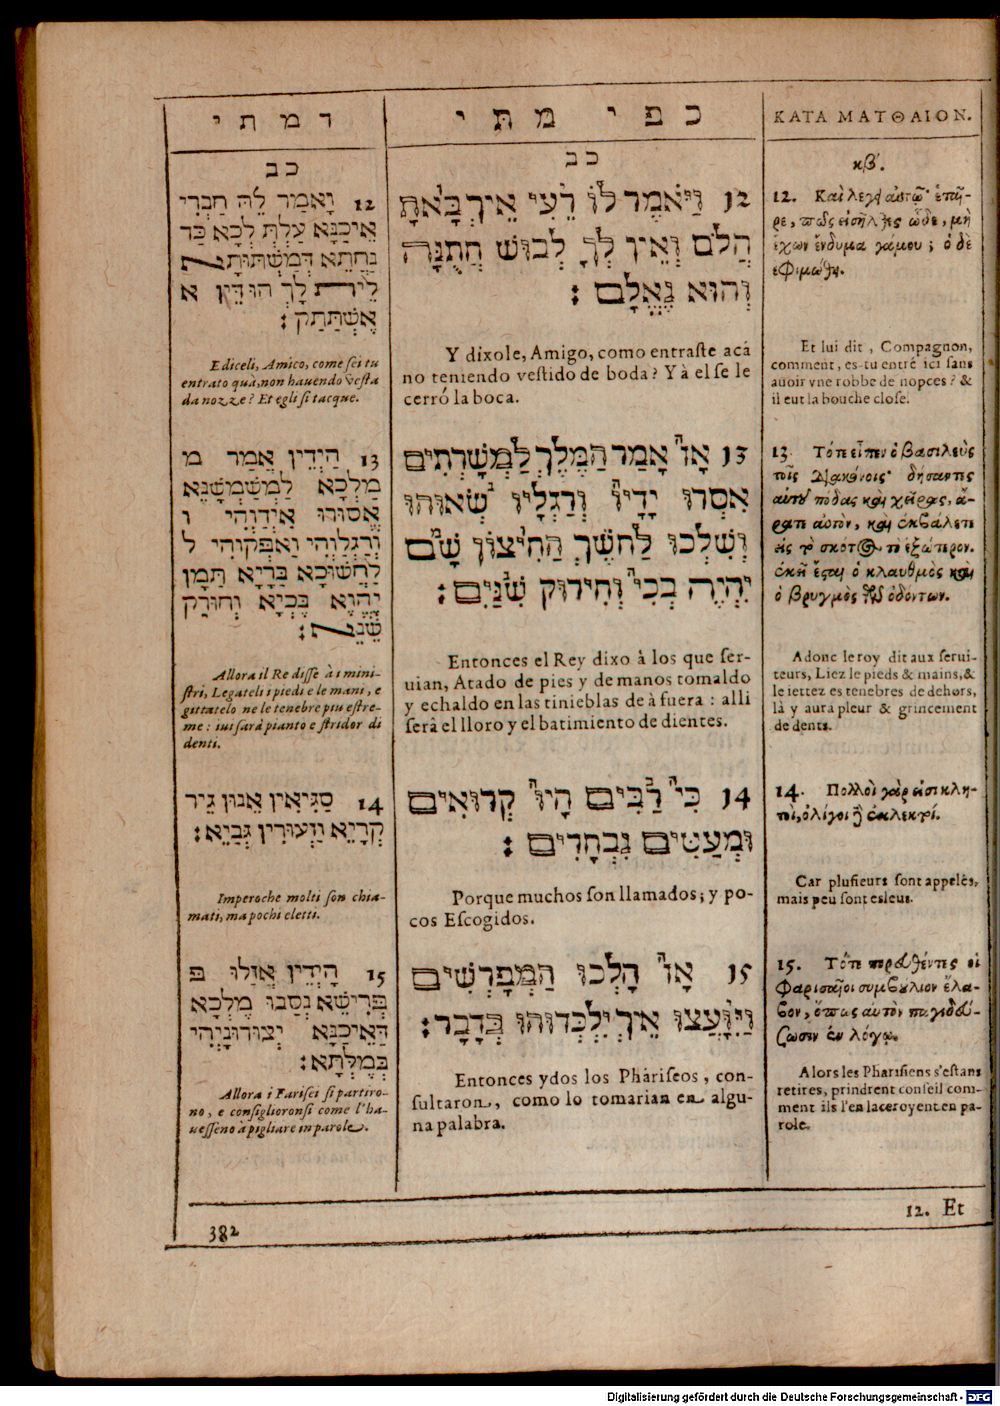 דמתי
כב
12 וָאמַר לֵה חַבְרי
אֵיכַנָא עַלְתְּ לְכָא כַּד
נַחְתֵא דְמִשְׁתּוּתָא
לַיתּ לָךְ הוּ דֵין א
אֶשְׁתַּתַק׃
E diceli, Amico, come sei tu
entrato quà, non hauendo vesta
da nozze? Et egli si tacque.
13 הַיְדֵין אֲמַר מ
מַלְכָּא לַמְשַׁמְשָׁנֵא
אֱסוּרוּ אִידַוְהִי ו
וְרַגְלַוְהִי וַאפְּקוּיהִי ל
לְחֵשׁוּכָא בַּרָיָא תַּמָן
יֶהֱוֵא בֶּכְיָא וְחוּרָק
שֵׁנֵא׃
Allora il Re disse à i mini-
stri, Legateli i piedi e le mani, e
gittatelo ne le tenebre piu estre-
me: iui sarà pianto e stridor di
denti.
14 סַגִיאִין אֵנוּן גֵיר
קְרַיֵא וַזְעוּרִין גְבַיֵא׃
Imperoche molti son chia-
mati, ma pochi eletti.
15 הַיְדֵין אֲזַלוּ פ
פְּרִישֵׁא נְסַבוּ מֶלְכָּא
דְאֵיכַּנָא יְצוּדוּנָיְהִי
בְּמֶלְתָא׃
Allora i Farisei si partiro-
no, e consiglioronsi come l'ha-
uesseno à pigliare in parole.
כפי מתי
כב
12 וַיֹּאמֶר לוֹ רֵעִי אֵיךְ בָּאתָ
הֲלֹם וְאֵין לְךָ לְבוּשׁ חֲתֻנָּה
וְהוּא נֶאֱלָם׃
Y dixole, Amigo, como entraste acá
no teniendo vestido de boda? Y à el se le
cerró la boca.
13 אָז אָמַר הַמֶּלֶךְ לַמְשָׁרְתִים
אִסְרוּ יָדָיו וְרַגְלָיו שְׂאוּהוּ
וְהַשְׁלִכוּ לַחֹשֶׁךְ הַחִיצוֹן שָׁם
יִהְיֶה בְכִי וְחִירוּק שִׁנַּיִם׃
Entonces el Rey dixo à los que ser-
uian, Atado de pies y de manos tomaldo
y echaldo en las tinieblas de à fuera: alli
serà el lloro y el batimiento de dientes.
14 כִּי רַבִּים הָיוּ קְרוּאִים
וּמְעַטִּים נִבְחָרִים׃
Porque muchos son llamados; y po-
cos Escogidos.
15 אָז הָלְכוּ הַמְּפָרְשִׁים
וַיִּוָּעֲצוּ אֵיךְ יִלְכְּדוּהוּ בְּדָבָר׃
Entonces ydos los Phariseos, con-
sultaron, como lo tomarian en algu-
na palabra.
ΚΑΤΑ ΜΑΤΘΑΙΟΝ.
κβ΄.
12. Καὶ λέγει αὐτῷ· ἑταῖ-
ρε, πῶς εἰσῆλθες ὧδε, μὴ
ἔχων ἔνδυμα γάμου; ὁ δὲ
ἐφιμώθη.
Et lui dit, Compagnon,
comment, es-tu entré ici sans
auoir vne robbe de nopces? &
il eut la bouche close.
13. Τότε εἶπεν ὁ βασιλεὺς
τοῖς διακόνοις· δήσαντες
αὐτοῦ πόδας καὶ χεῖρας, ἄ-
ρατε αὐτὸν, καὶ ἐκβάλετε
εἰς τὸ σκότος τὸ ἐξώτερον.
ἐκεῖ ἔσται ὁ κλαυθμὸς καὶ
ὁ βρυγμὸς τῶν ὀδόντων.
Adonc le roy dit aux serui-
teurs, Liez le pieds & mains, &
le iettez es tenebres de dehors,
là y aura pleur & grincement
de dents.
14. Πολλοὶ γάρ εἰσι κλη-
τοὶ, ὀλίγοι δὲ ἐκλεκτοί.
Car plusieurs sont appelés,
mais peu sont esleus.
15. Τότε πορευθέντες οἱ
Φαρισαῖοι συμβούλιον ἔλα-
βον, ὅπως αὐτὸν παγιδεύ-
σωσιν ἐν λόγῳ.
Alors les Pharisiens s'estans
retires, prindrent conseil com-
ment ils l'en laceroyent en pa-
role.
12. Et
382
Digitalisierung gefördert durch die Deutsche Forschungsgemeinschaft - DFG